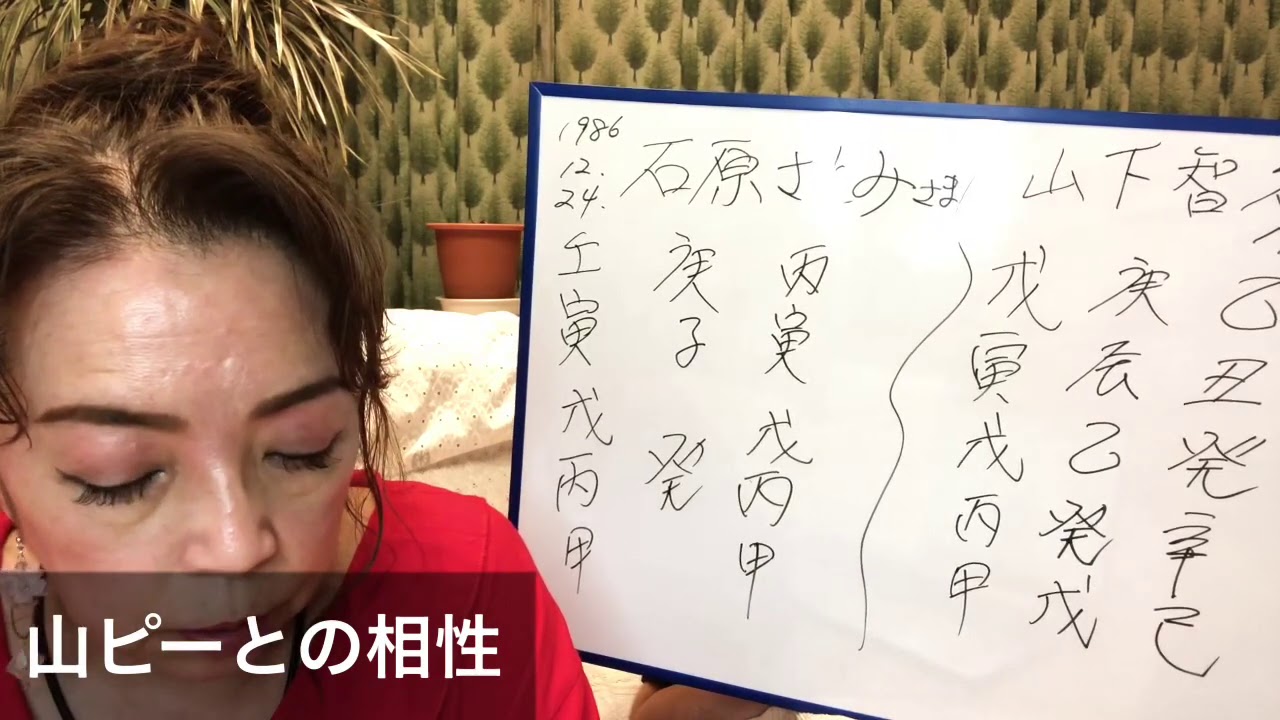 1986
12.
24.
石原さとみさま
山下智
壬 庚 丙
寅 子 寅
戊 癸 戊
丙 丙
甲 甲
戊 庚 乙
寅 辰 丑
戊 乙 癸
丙 癸 辛
甲 戊 己
山ピーとの相性